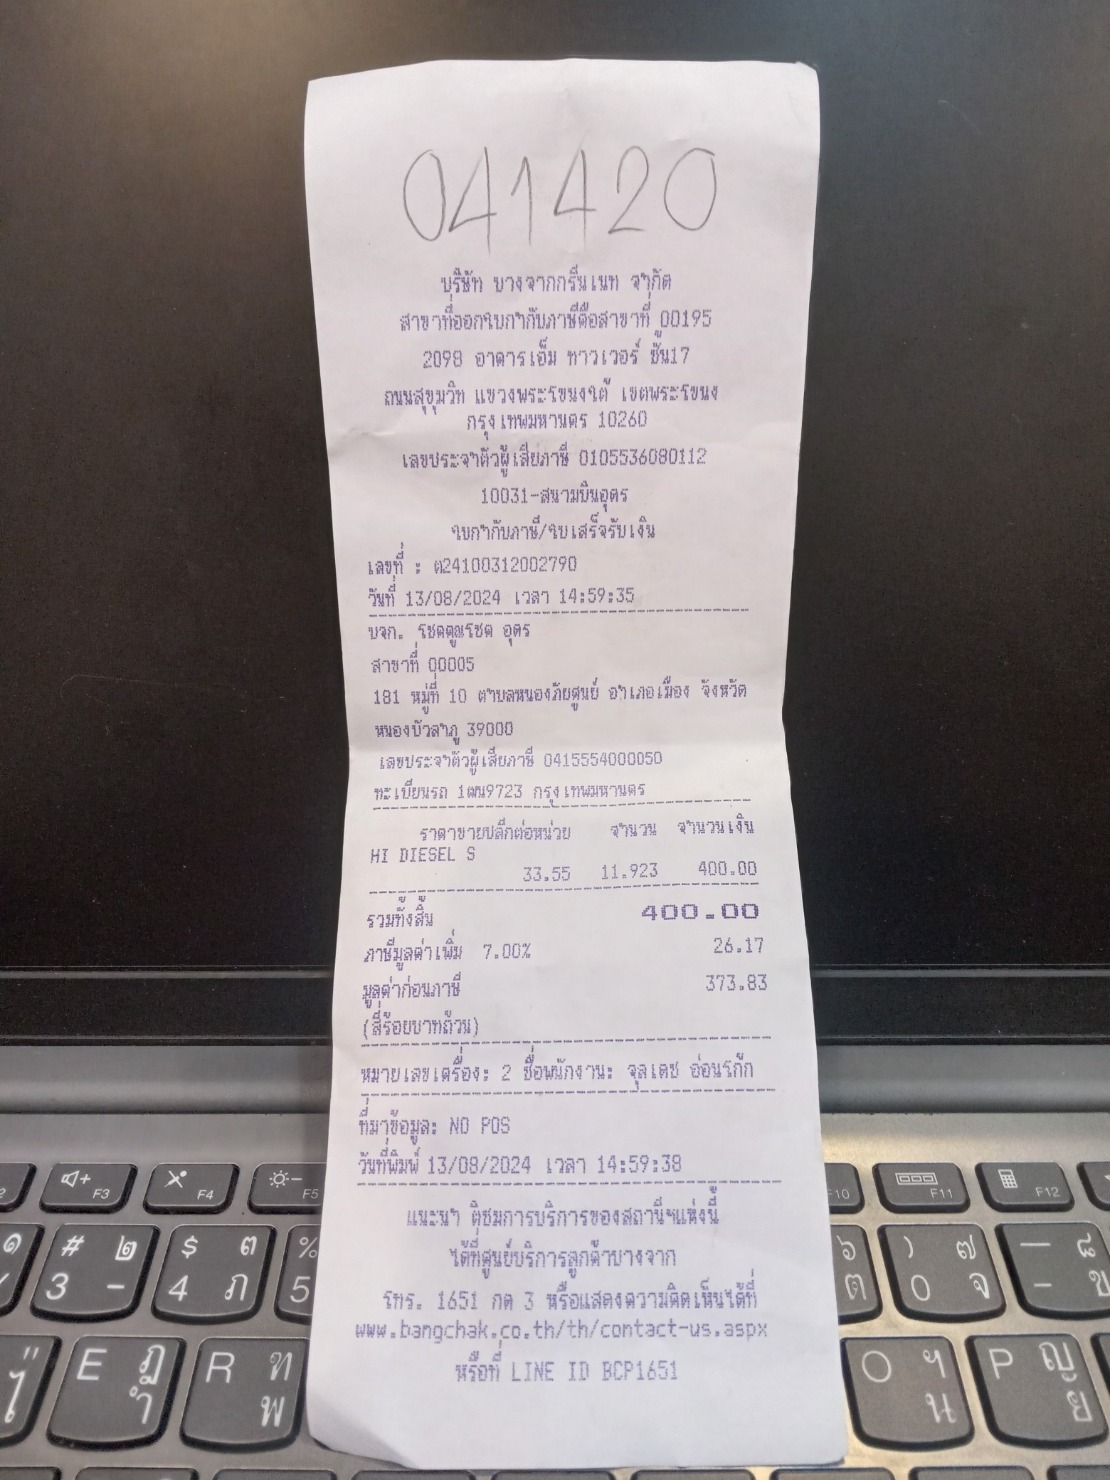 041420
บริษัท บางจากกรีนเนท จำกัด
สาขาที่ออกใบกำกับภาษีคือสาขาที่ 00195
2098 อาคารเอ็ม ทาวเวอร์ ชั้น17
ถนนสุขุมวิท แขวงพระโขนงใต้ เขตพระโขนง
กรุงเทพมหานคร 10260
เลขประจำตัวผู้เสียภาษี 0105536080112
10031-สนามบินอุดร
ใบกำกับภาษี/ใบเสร็จรับเงิน
เลขที่ : ต24100312002790
วันที่ 13/08/2024 เวลา 14:59:35
บจก. โชคคูณโชค อุดร
สาขาที่ 00005
181 หมู่ที่ 10 ตำบลหนองภัยศูนย์ อำเภอเมือง จังหวัด
หนองบัวลำภู 39000
เลขประจำตัวผู้เสียภาษี 0415554000050
ทะเบียนรถ 1ฒน9723 กรุงเทพมหานคร
ราคาขายปลีกต่อหน่วย จำนวน จำนวนเงิน
HI DIESEL S
33.55 11.923 400.00
รวมทั้งสิ้น 400.00
ภาษีมูลค่าเพิ่ม 7.00% 26.17
มูลค่าก่อนภาษี 373.83
(สี่ร้อยบาทถ้วน)
หมายเลขเครื่อง: 2 ชื่อพนักงาน: จุลเดช อ่อนรกัก
ที่มาข้อมูล: NO POS
วันที่พิมพ์ 13/08/2024 เวลา 14:59:38
แนะนำ ติชมการบริการของสถานีฯแห่งนี้
ได้ที่ศูนย์บริการลูกค้าบางจาก
โทร. 1651 กด 3 หรือแสดงความคิดเห็นได้ที่
www.bangchak.co.th/th/contact-us.aspx
หรือที่ LINE ID BCP1651
F3 F4 F5 F10 F11 F12
# ๒ 3 - $ ๓ 4 ภ % 5 ๖ ต ) ๗ 0 จ — ๘ - ข
E ฎ ำ R ฑ พ O ฯ น P ญ ย